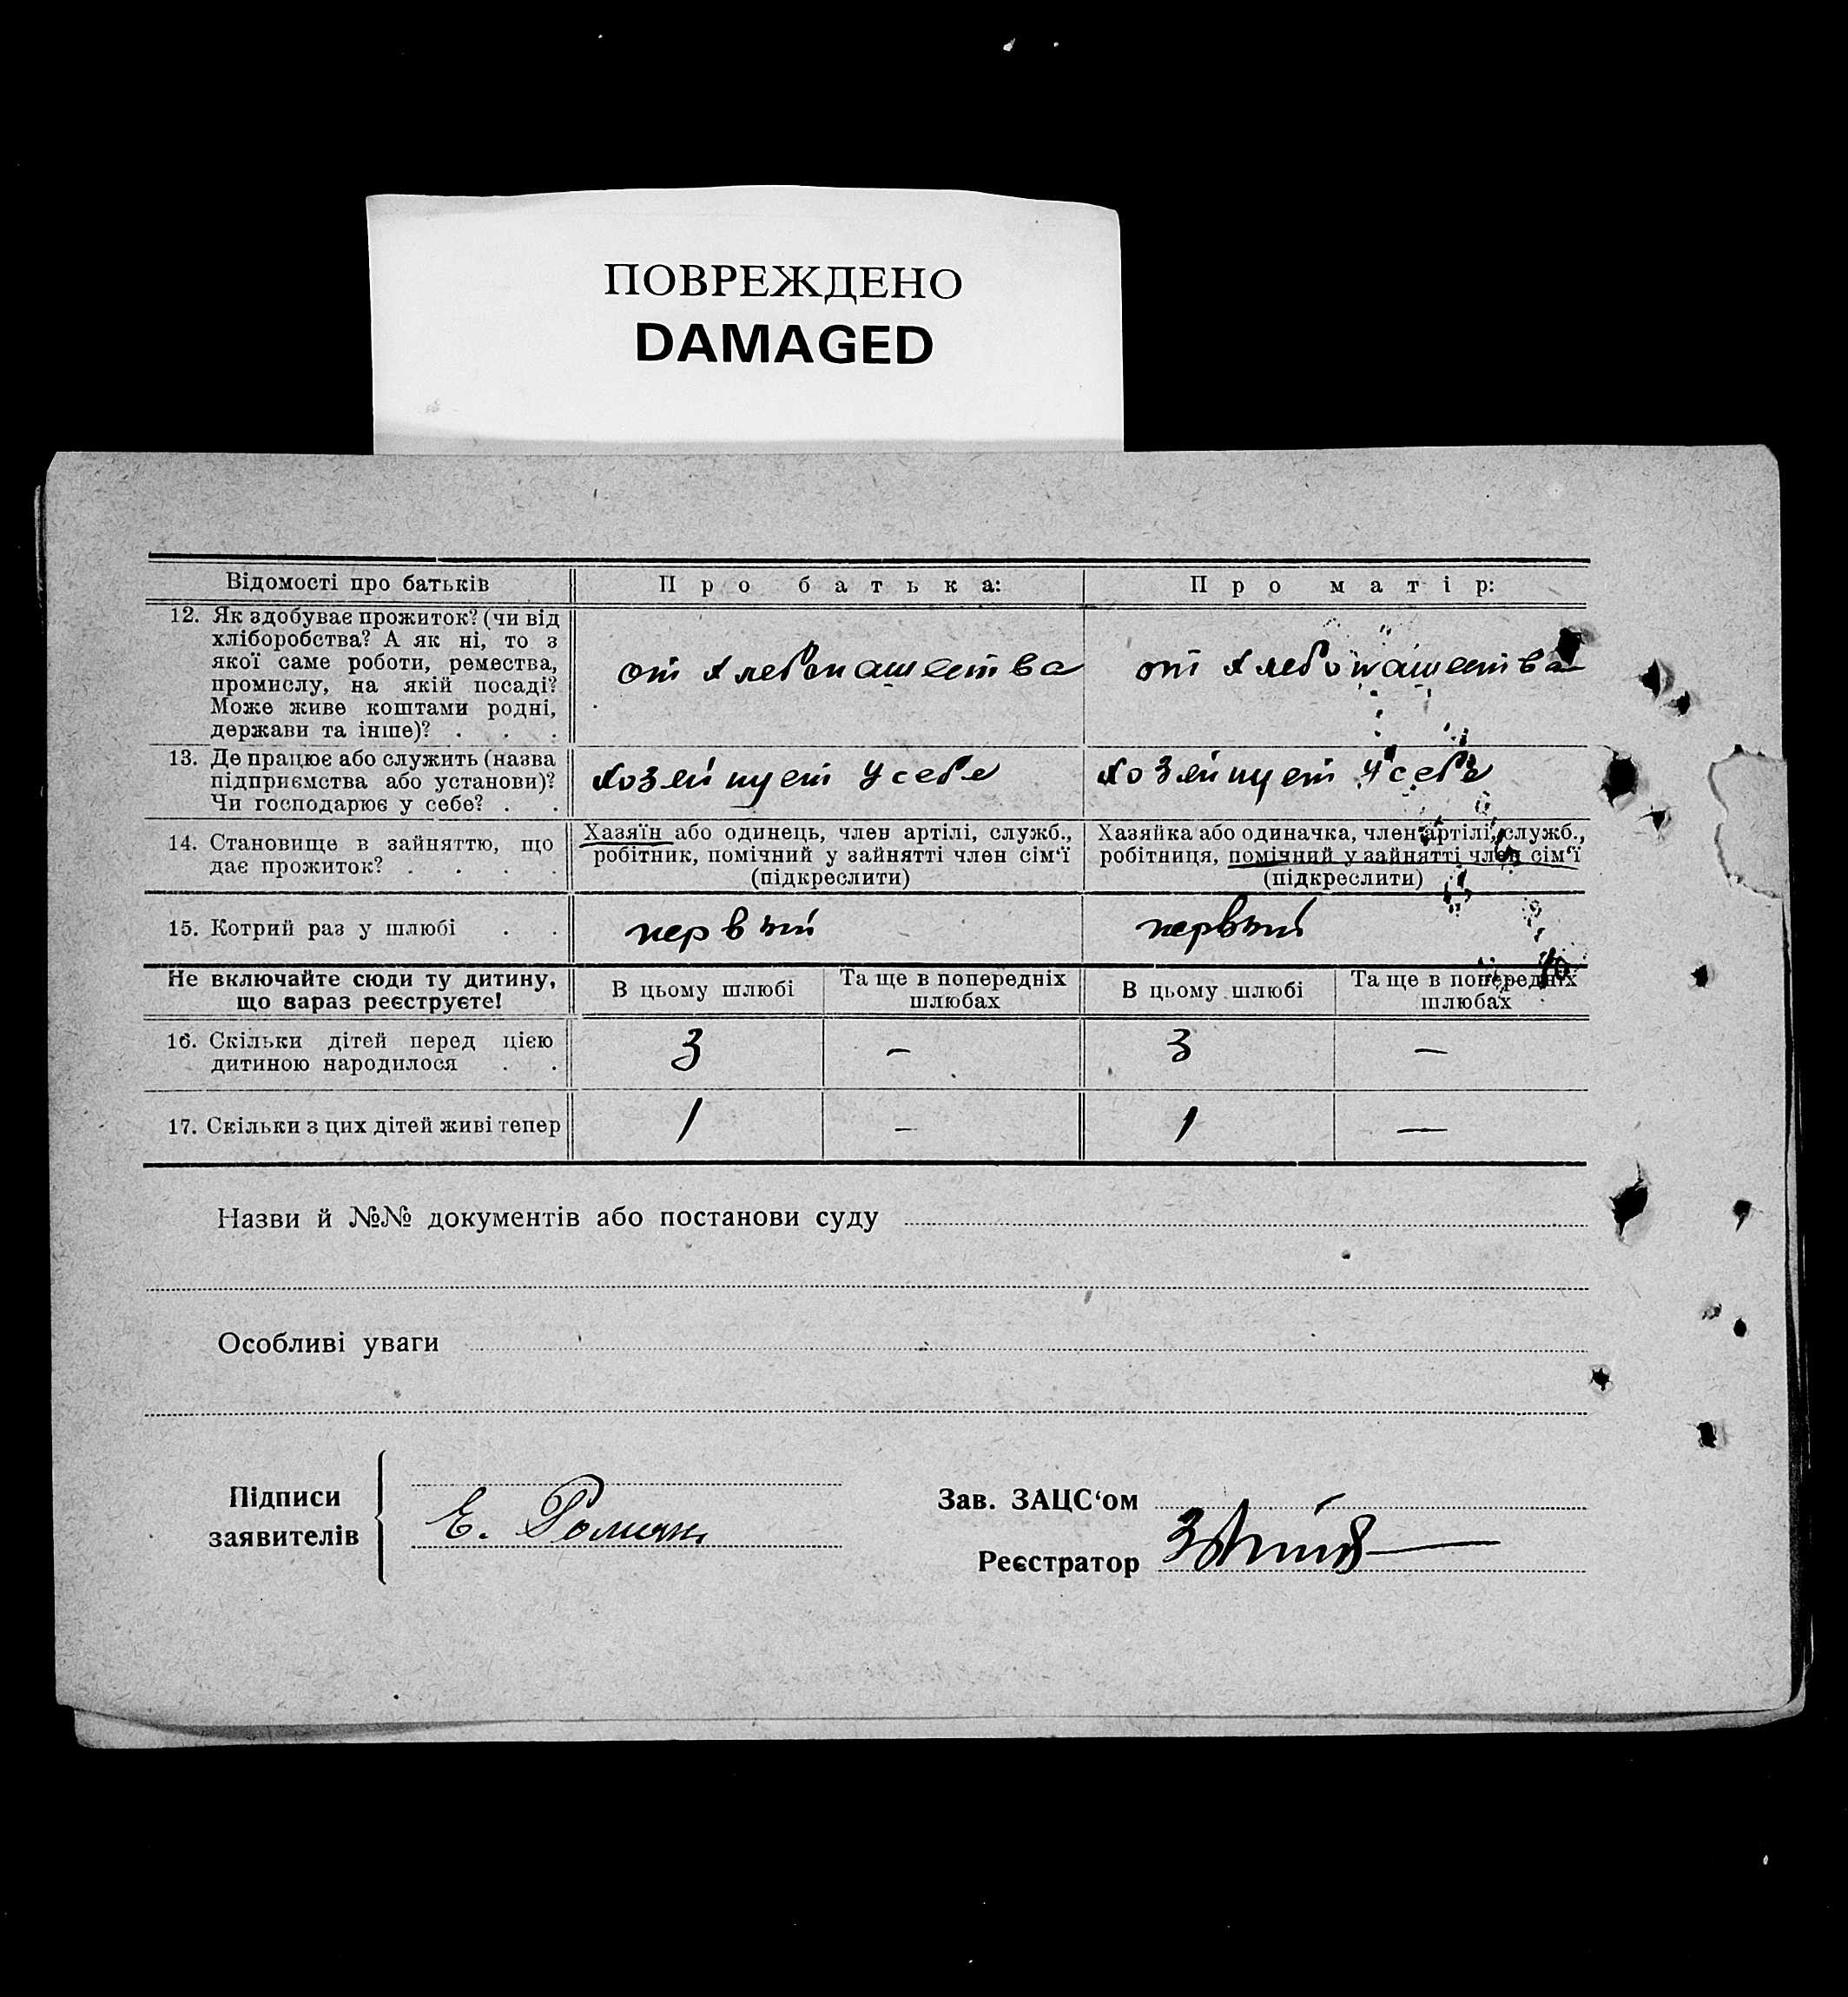 ПОВРЕЖДЕНО
DAMAGED
Відомості про батьків
Про батька:
Про матір:
12. Як здобуває прожиток? (чи від
хліборобства? А як ні, то з
якої саме роботи, ремества,
промислу, на якій посаді?
Може живе коштами родні,
держави та інше)? . . .
от хлебопашества
от хлебопашества
13. Де працює або служить (назва
підприємства або установи)?
Чи господарює у себе? . .
хозейнует у себе
хозейнует у себе
14. Становище в зайняттю, що
дає прожиток? . . . .
Хазяїн або одинець, член артілі, служб.,
робітник, помічний у зайнятті член сім'ї
(підкреслити)
Хазяйка або одиначка, член артілі, служб.,
робітниця, помічний у зайнятті член сім'ї
(підкреслити)
15. Котрий раз у шлюбі . .
первый
первый
Не включайте сюди ту дитину,
що зараз реєструєте!
В цьому шлюбі
Та ще в попередніх
шлюбах
В цьому шлюбі
Та ще в попередніх
шлюбах
16. Скільки дітей перед цією
дитиною народилося . .
3
—
3
—
17. Скільки з цих дітей живі тепер
1
—
1
—
Назви й №№ документів або постанови суду
Особливі уваги
Підписи
заявителів
Е.
Зав. ЗАЦС'ом
Реєстратор